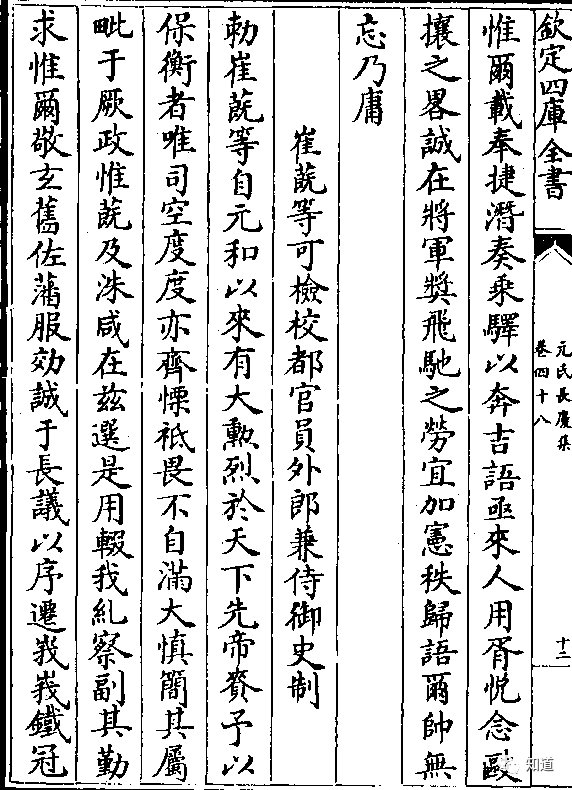 欽定四庫全書
元氏長慶集
卷四十八
十二
惟爾載奉捷潛奏乗驛以奔吉語亟來人用胥恱念毆
攘之畧誠在將軍奬飛馳之勞宜加憲秩歸語爾帥無
忘乃庸
崔蔇等可檢校都官員外郎兼侍御史制
勅崔蔇等自元和以來有大勲烈於天下先帝賚予以
保衡者唯司空度度亦齊慄祗畏不自滿大慎簡其屬
毗于厥政惟蔇及洙咸在兹選是用輟我糺察副其勤
求惟爾敬玄舊佐藩服効誠于長議以序遷峩峩鐵冠
知道